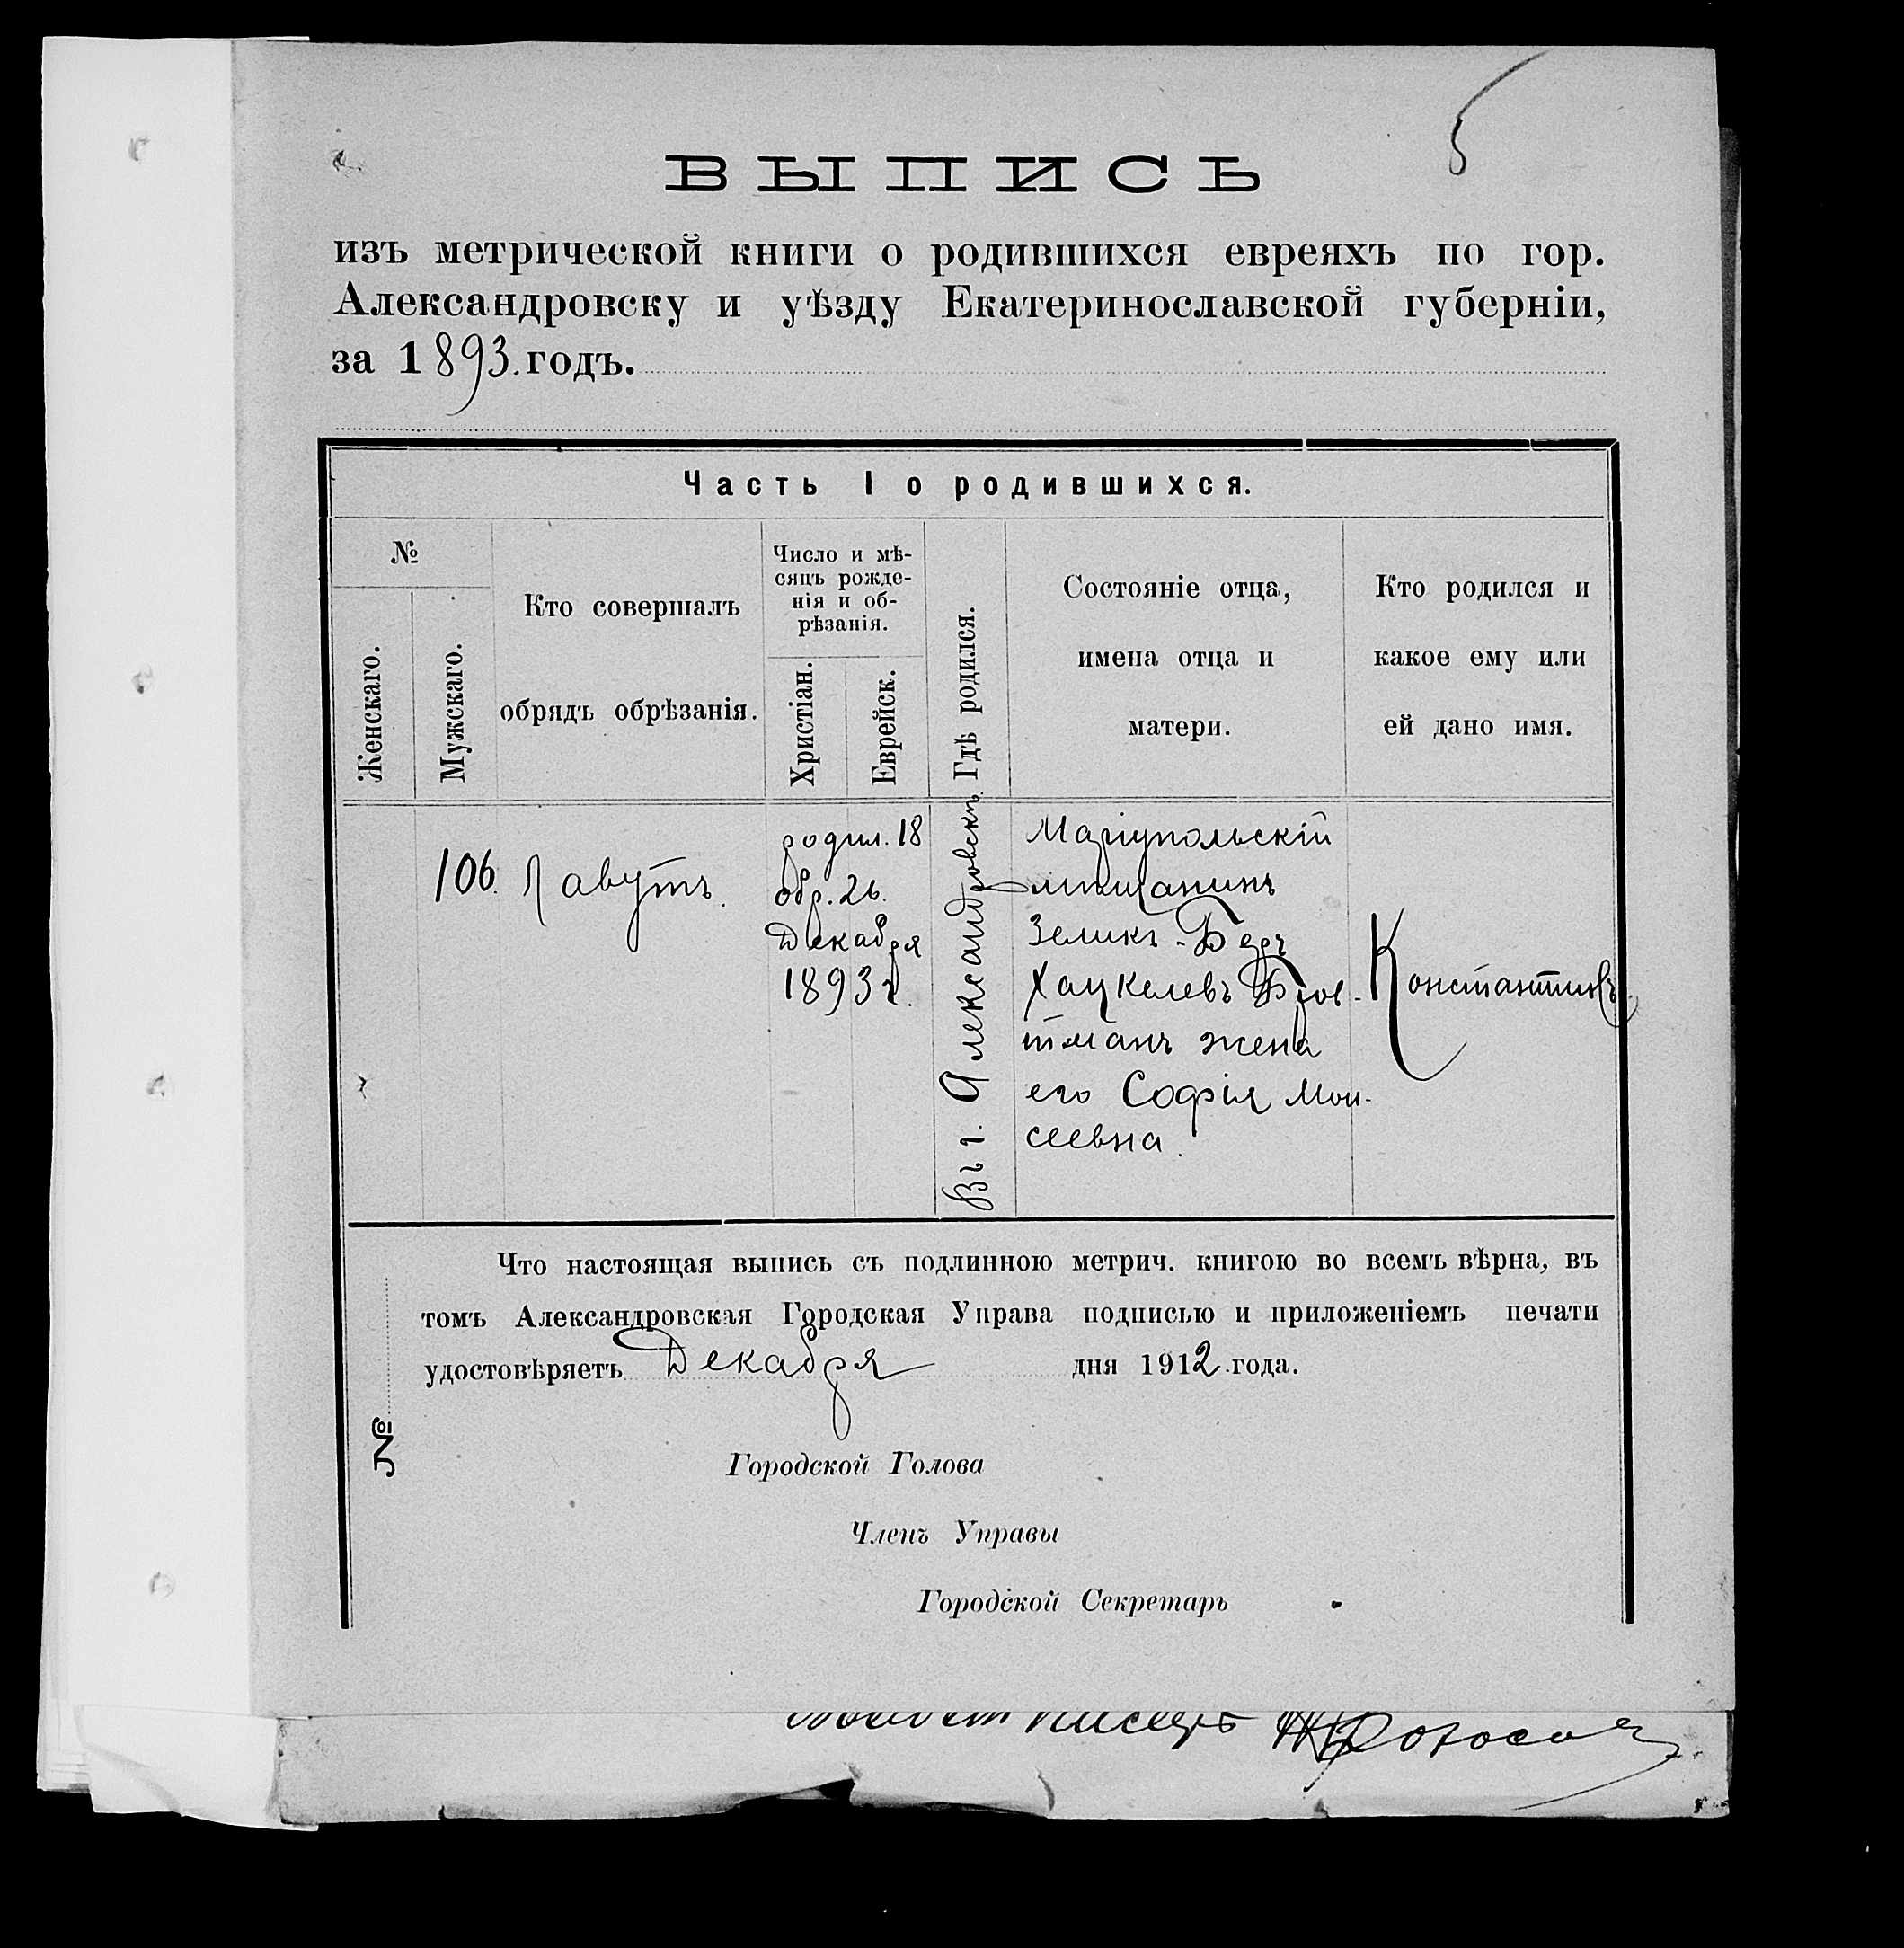 ВЫПИСЬ
изъ метрической книги о родившихся евреяхъ по гор.
Александровску и уѣзду Екатеринославской губерніи,
за 1893. годъ.
Часть I о родившихся.
№
Женскаго.
Мужскаго.
Кто совершалъ
обрядъ обрѣзанія.
Число и мѣ-
сяцъ рожде-
нія и об-
рѣзанія.
Христіан.
Еврейск.
Гдѣ родился.
Состояніе отца,
имена отца и
матери.
Кто родился и
какое ему или
ей дано имя.
106.
Лавутъ.
родил. 18
обр. 26.
Декабря
1893 г.
Въ г. Александровскѣ
Маріупольскій
мѣщанинъ
Зеликъ-Беръ
Хацкелевъ Брог-
тманъ жена
его Софія Мои-
сеевна.
Константинъ
Что настоящая выпись съ подлинною метрич. книгою во всемъ вѣрна, въ
томъ Александровская Городская Управа подписью и приложеніемъ печати
удостовѣряетъ Декабря дня 1912 года.
№
Городской Голова
Членъ Управы
Городской Секретарь